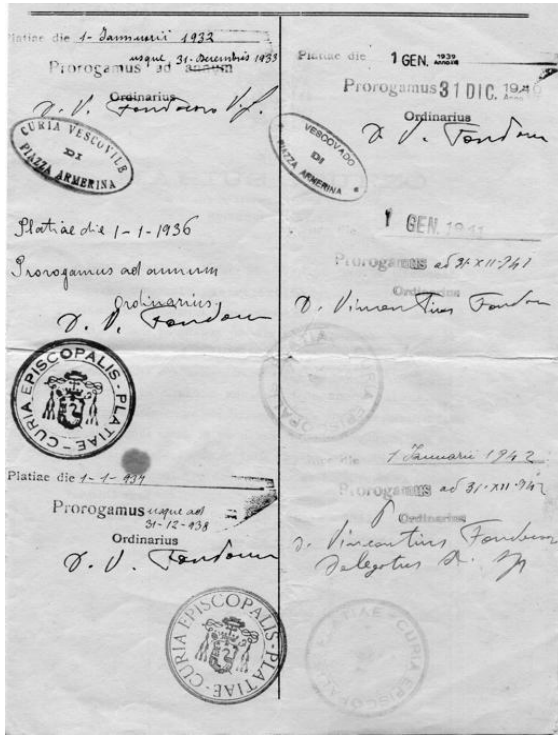 Platiae die 1- Januarii 1932
usque 31-Decembris 1933
Prorogamus ad annum
Ordinarius
D. V.
CURIA VESCOVILE
DI
PIAZZA ARMERINA
Platiae die 1-1-1936
Prorogamus ad annum
Ordinarius
D. V.
CURIA EPISCOPALIS - PLATIAE
Platiae die 1-1-937
Prorogamus usque ad
31-12-938
Ordinarius
D. V.
CURIA EPISCOPALIS - PLATIAE
Platiae die 1 GEN. 1939
Prorogamus 31 DIC. 1940
Ordinarius
D. V.
VESCOVADO
DI
PIAZZA ARMERINA
1 GEN. 1941
Prorogamus ad 31-XII-941
Ordinarius
D. Vincentius
PLATIAE - CURIA EPISCOPALIS
die 1 Januarii 1942
Prorogamus ad 31-XII-942
Ordinarius
D. Vincentius
Delegatus
PLATIAE - CURIA EPISCOPALIS